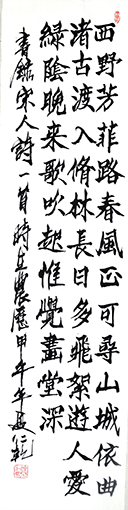 西野芳菲路春風正可尋山城依曲
渚古渡入脩林長日多飛絮遊人愛
綠陰晚来歌吹起惟覺畫堂深
書錄宋人詩一首時在農歷甲午年夏仁乾